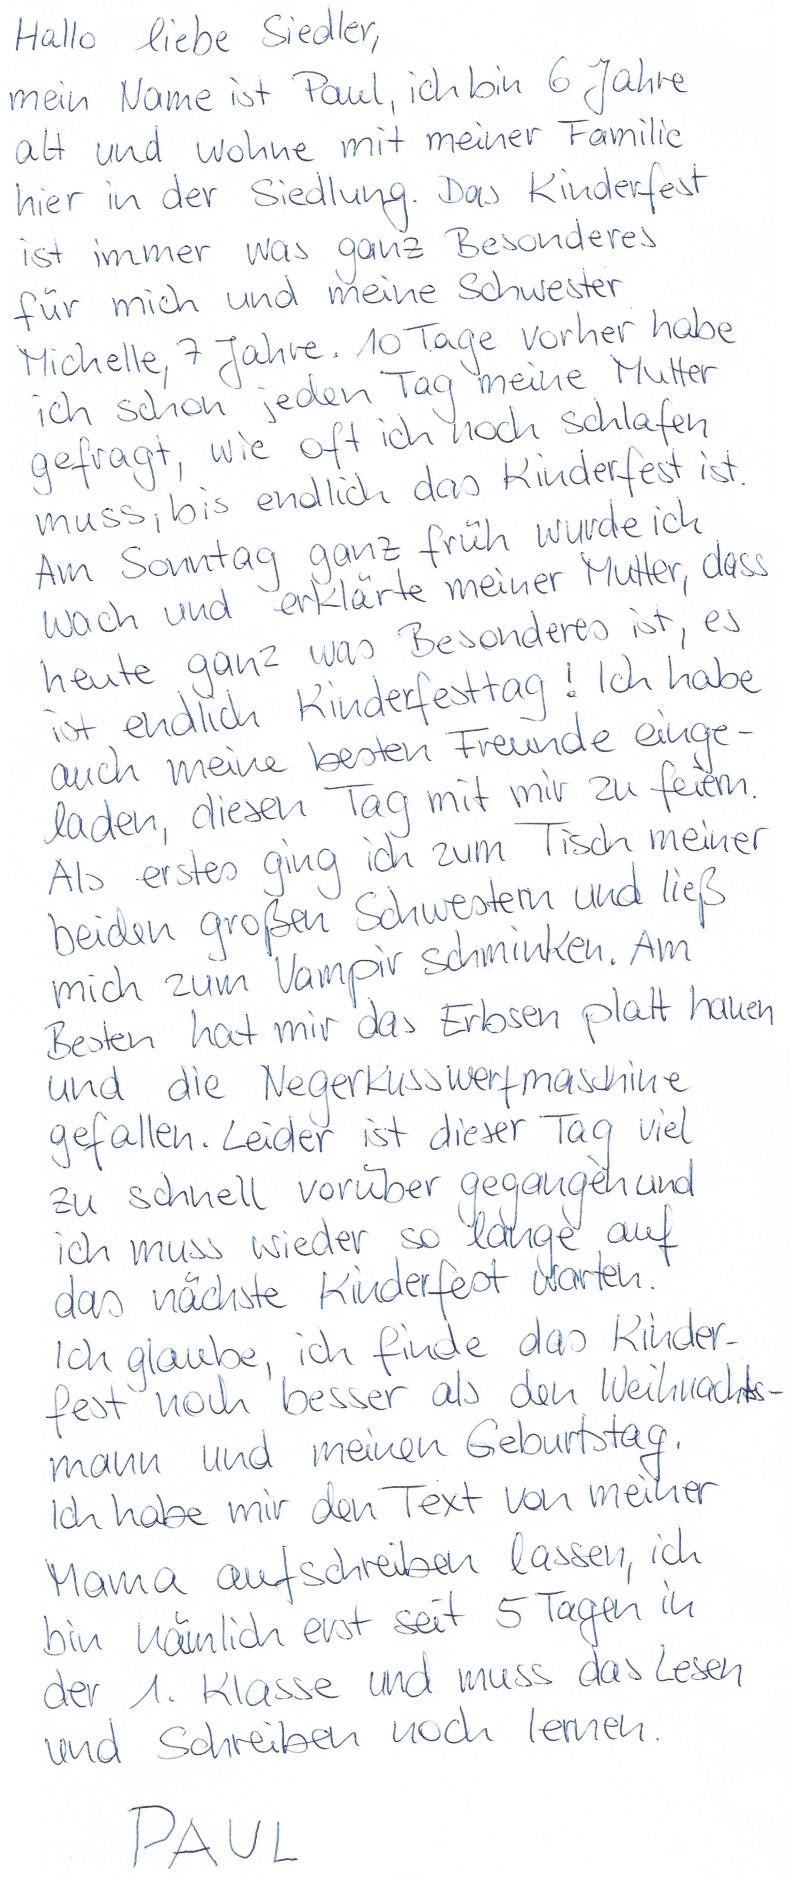 Hallo liebe Siedler,
mein Name ist Paul, ich bin 6 Jahre
alt und wohne mit meiner Familie
hier in der Siedlung. Das Kinderfest
ist immer was ganz Besonderes
für mich und meine Schwester
Michelle, 7 Jahre. 10 Tage vorher habe
ich schon jeden Tag meine Mutter
gefragt, wie oft ich noch schlafen
muss, bis endlich das Kinderfest ist.
Am Sonntag ganz früh wurde ich
wach und erklärte meiner Mutter, dass
heute ganz was Besonderes ist, es
ist endlich Kinderfesttag! Ich habe
auch meine besten Freunde einge-
laden, diesen Tag mit mir zu feiern.
Als erstes ging ich zum Tisch meiner
beiden großen Schwestern und ließ
mich zum Vampir schminken. Am
Besten hat mir das Erbsen platt hauen
und die Negerkusswerfmaschine
gefallen. Leider ist dieser Tag viel
zu schnell vorüber gegangen und
ich muss wieder so lange auf
das nächste Kinderfest warten.
Ich glaube, ich finde das Kinder-
fest noch besser als den Weihnachts-
mann und meinen Geburtstag.
Ich habe mir den Text von meiner
Mama aufschreiben lassen, ich
bin nämlich erst seit 5 Tagen in
der 1. Klasse und muss das Lesen
und Schreiben noch lernen.
PAUL